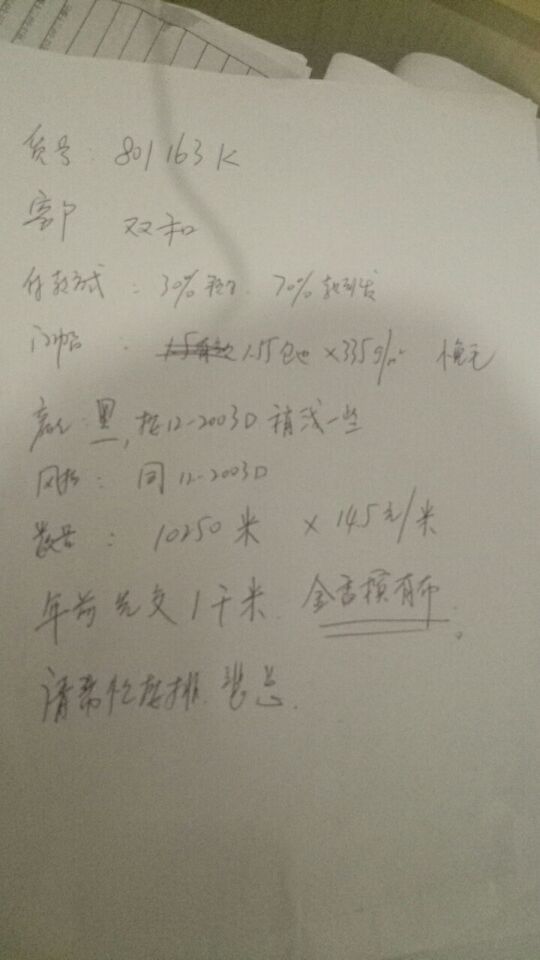 货号: 801163K
客户 双和
付款方式: 30%预付. 70%款到发
门幅: 1.55包边×335g/㎡
颜色: 黑, 按12-2003D稍浅一些
风格: 同12-2003D
数量: 10250米 × 14.5元/米
年前先交1千米.
请帮忙安排. 总.